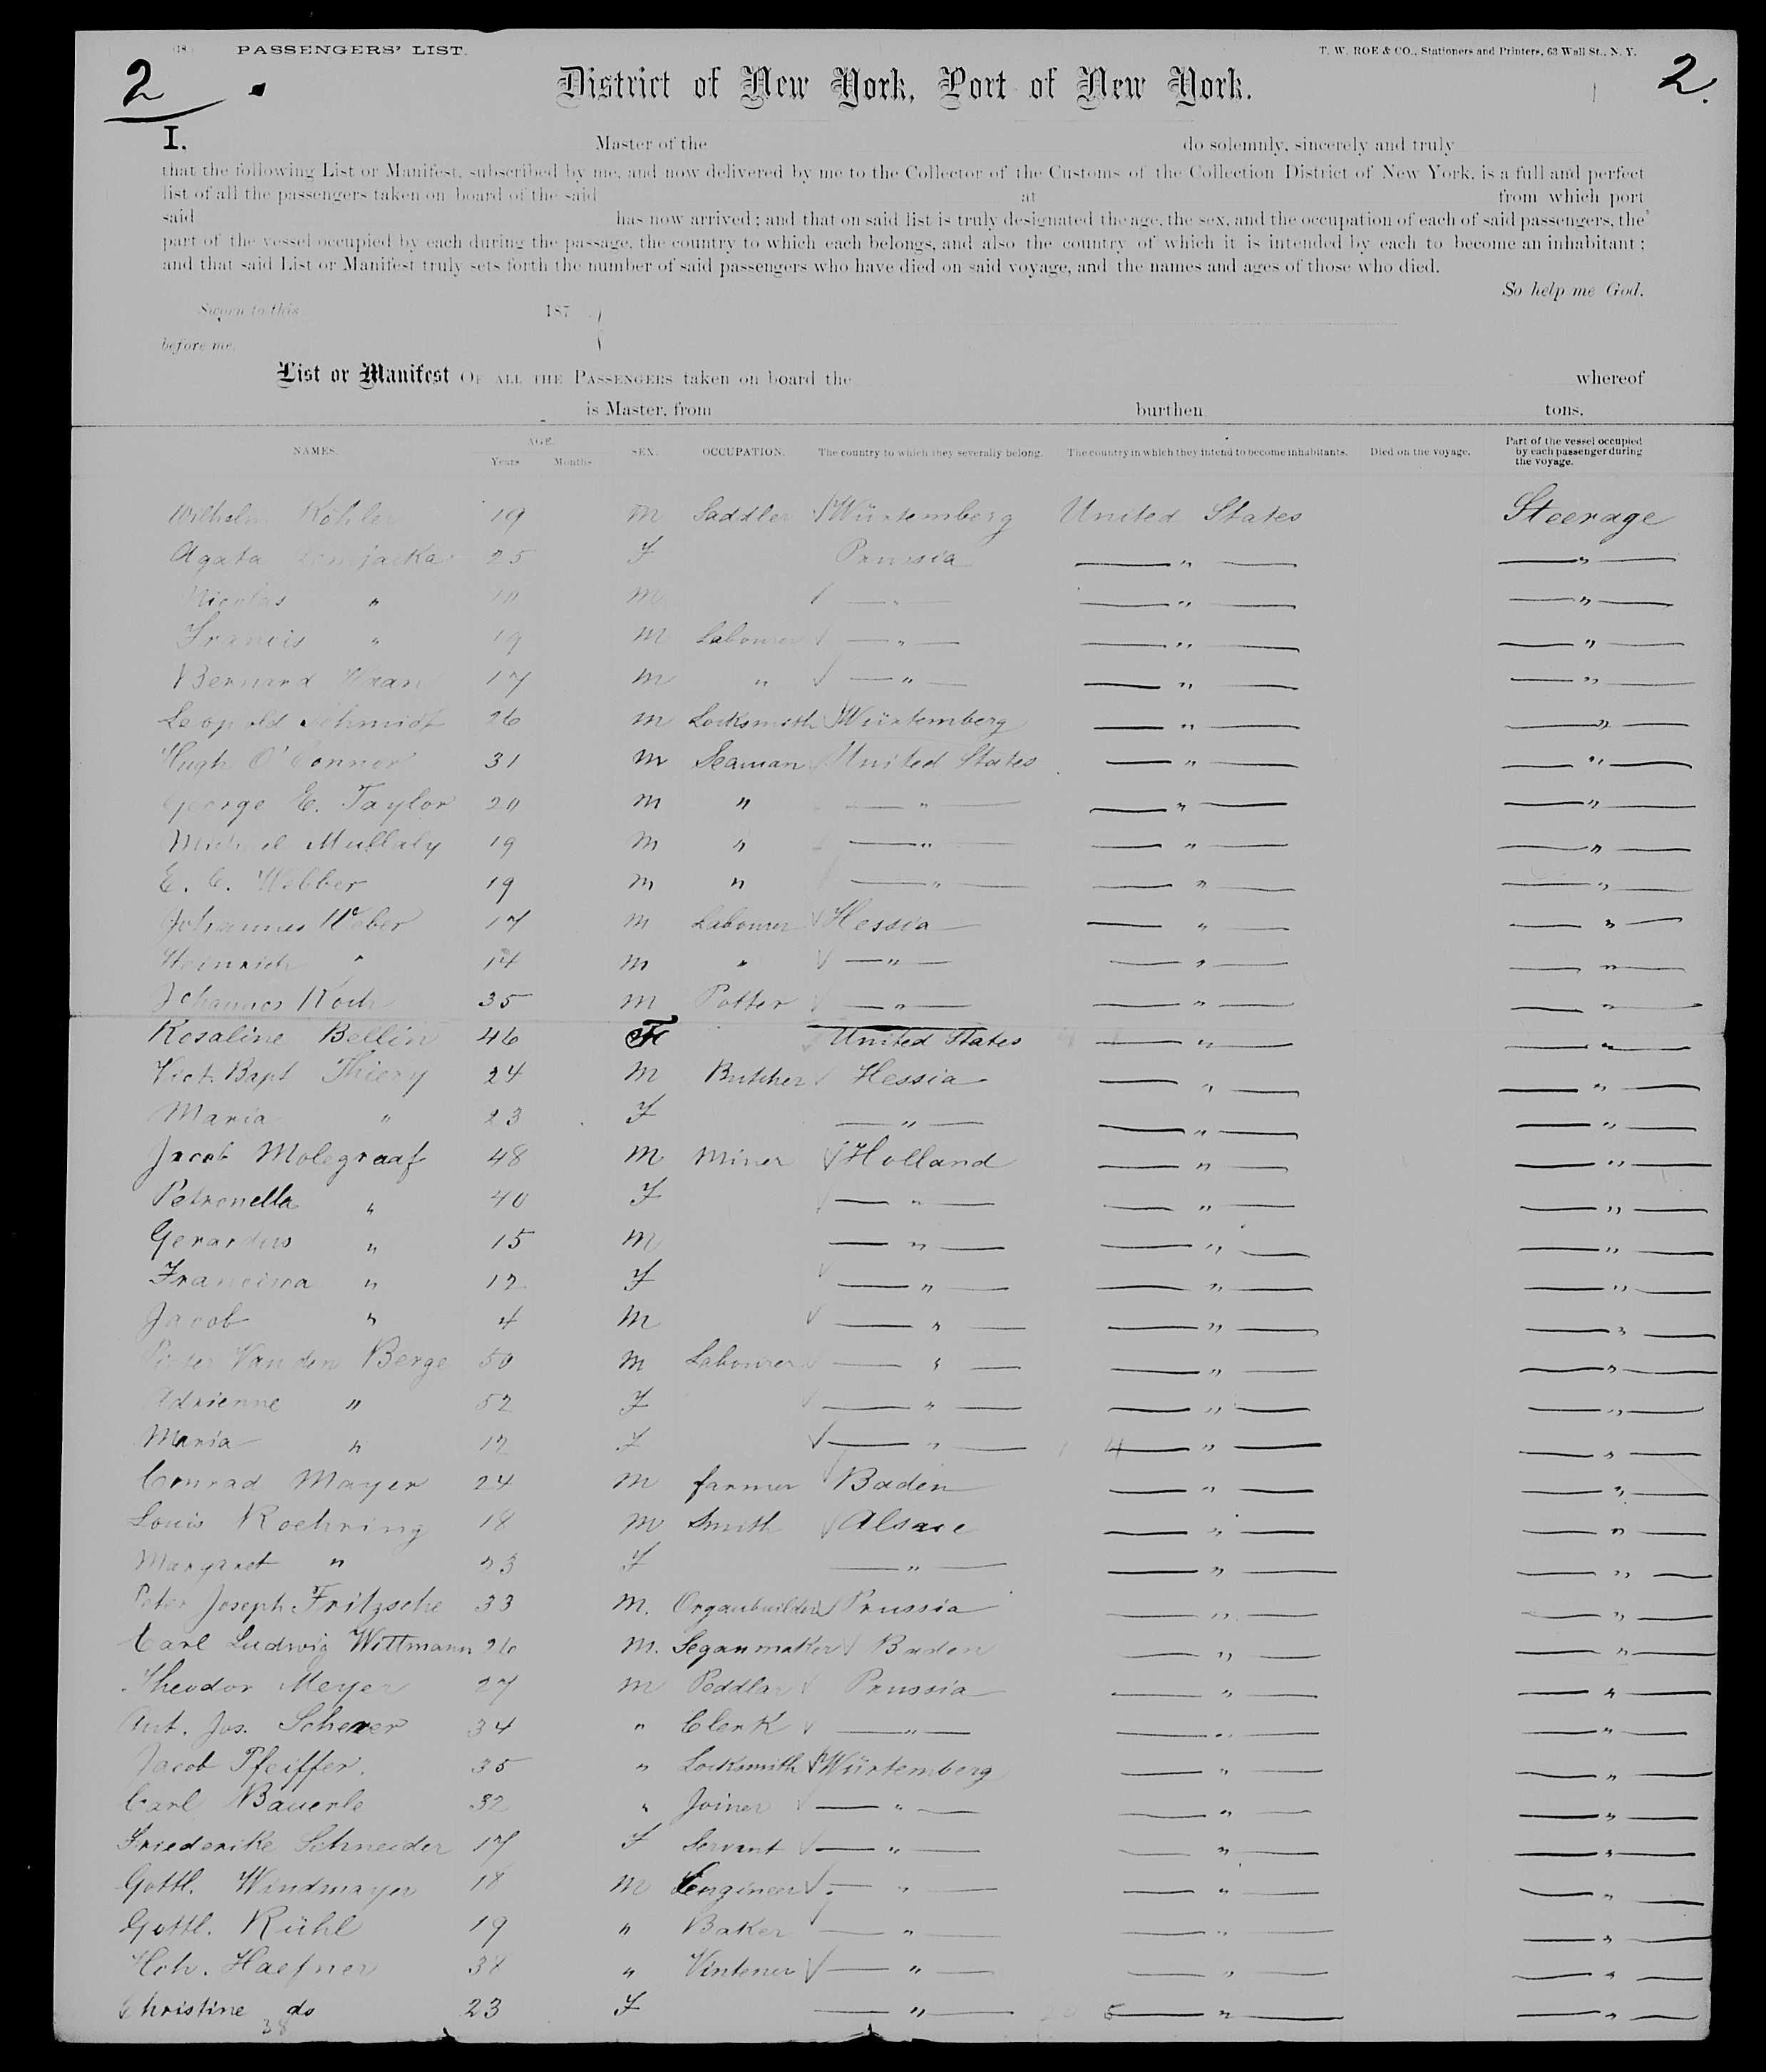 PASSENGERS' LIST. T. W. ROE & CO., Stationers and Printers, 63 Wall St., N. Y.
2 2.
District of New York, Port of New York.
I. Master of the do solemnly, sincerely and truly
that the following List or Manifest, subscribed by me, and now delivered by me to the Collector of the Customs of the Collection District of New York, is a full and perfect
list of all the passengers taken on board of the said at from which port
said has now arrived; and that on said list is truly designated the age, the sex, and the occupation of each of said passengers, the
part of the vessel occupied by each during the passage, the country to which each belongs, and also the country of which it is intended by each to become an inhabitant;
and that said List or Manifest truly sets forth the number of said passengers who have died on said voyage, and the names and ages of those who died.
So help me God.
Sworn to this 187
before me.
List or Manifest OF ALL THE PASSENGERS taken on board the whereof
is Master, from burthen tons.
NAMES. AGE. Years Months SEX. OCCUPATION. The country to which they severally belong. The country in which they intend to become inhabitants. Died on the voyage. Part of the vessel occupied by each passenger during the voyage.
Wilhelm Köhler 19 M Saddler Würtemberg United States Steerage
Agata 25 F Prussia " "
Nicolas " M " " "
Francis " 19 M Labourer " " "
Bernard Haan 17 M " " " "
Leopold Schmidt 26 M Locksmith Würtemberg " "
Hugh O'Connor 31 M Seaman United States " "
George E. Taylor 20 M " " " "
Michael Mullaly 19 M " " " "
E. C. Webber 19 M " " " "
Johannes Weber 17 M Labourer Hessia " "
Heinrich " 14 M " " " "
Johannes Koch 35 M Potter " " "
Rosaline Bellin 46 F United States " "
Vict. Bapt Thiery 24 M Butcher Hessia " "
Maria " 23 F " " "
Jacob Molegraaf 48 M Miner Holland " "
Petronella " 40 F " " "
Gerardus " 15 M " " "
Francisca " 12 F " " "
Jacob " 4 M " " "
Pieter Van den Berge 50 M Labourer " " "
Adrienne " 52 F " " "
Maria " 12 F " " "
Conrad Mayer 24 M farmer Baden " "
Louis Roehring 18 M Smith Alsace " "
Margaret " 23 F " " "
Peter Joseph Fritzsche 33 M. Organbuilder Prussia " "
Carl Ludwig Wittmann 26 M. Segarmaker Baden " "
Theodor Meyer 27 M Peddlar Prussia " "
Ant. Jos. Scherer 34 " Clerk " " "
Jacob Pfeiffer. 35 " Locksmith Würtemberg " "
Carl Bauerle 32 " Joiner " " "
Friederike Schneider 17 F Servant " " "
Gottl. Windmayer 18 M Engineer " " "
Gottl. Rühl 19 " Baker " " "
Hch. Haefner 38 " Vintener " " "
Christine do 23 F " " "
38